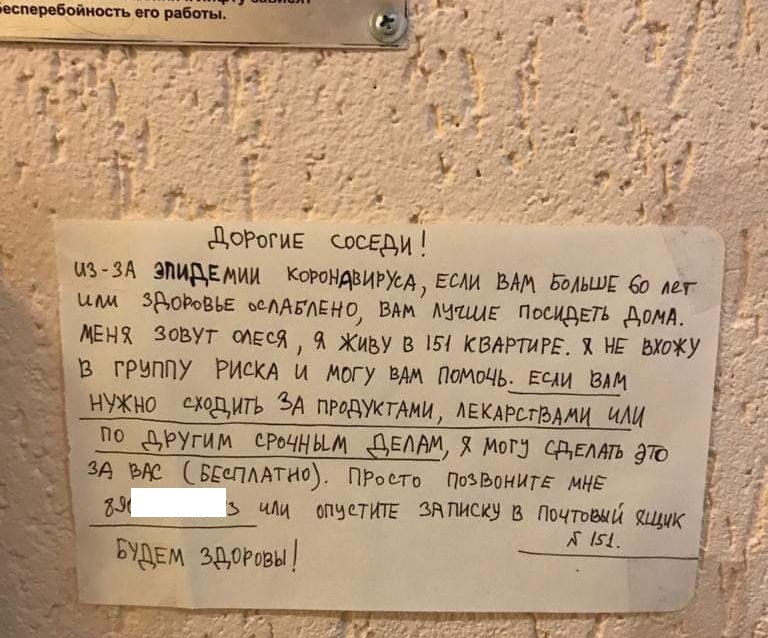 бесперебойность его работы.
ДОРОГИЕ СОСЕДИ!
ИЗ-ЗА ЭПИДЕМИИ КОРОНАВИРУСА, ЕСЛИ ВАМ БОЛЬШЕ 60 ЛЕТ
ИЛИ ЗДОРОВЬЕ ОСЛАБЛЕНО, ВАМ ЛУЧШЕ ПОСИДЕТЬ ДОМА.
МЕНЯ ЗОВУТ ОЛЕСЯ, Я ЖИВУ В 151 КВАРТИРЕ. Я НЕ ВХОЖУ
В ГРУППУ РИСКА И МОГУ ВАМ ПОМОЧЬ. ЕСЛИ ВАМ
НУЖНО СХОДИТЬ ЗА ПРОДУКТАМИ, ЛЕКАРСТВАМИ ИЛИ
ПО ДРУГИМ СРОЧНЫМ ДЕЛАМ, Я МОГУ СДЕЛАТЬ ЭТО
ЗА ВАС (БЕСПЛАТНО). ПРОСТО ПОЗВОНИТЕ МНЕ
89 3 ИЛИ ОПУСТИТЕ ЗАПИСКУ В ПОЧТОВЫЙ ЯЩИК
№ 151.
БУДЕМ ЗДОРОВЫ!